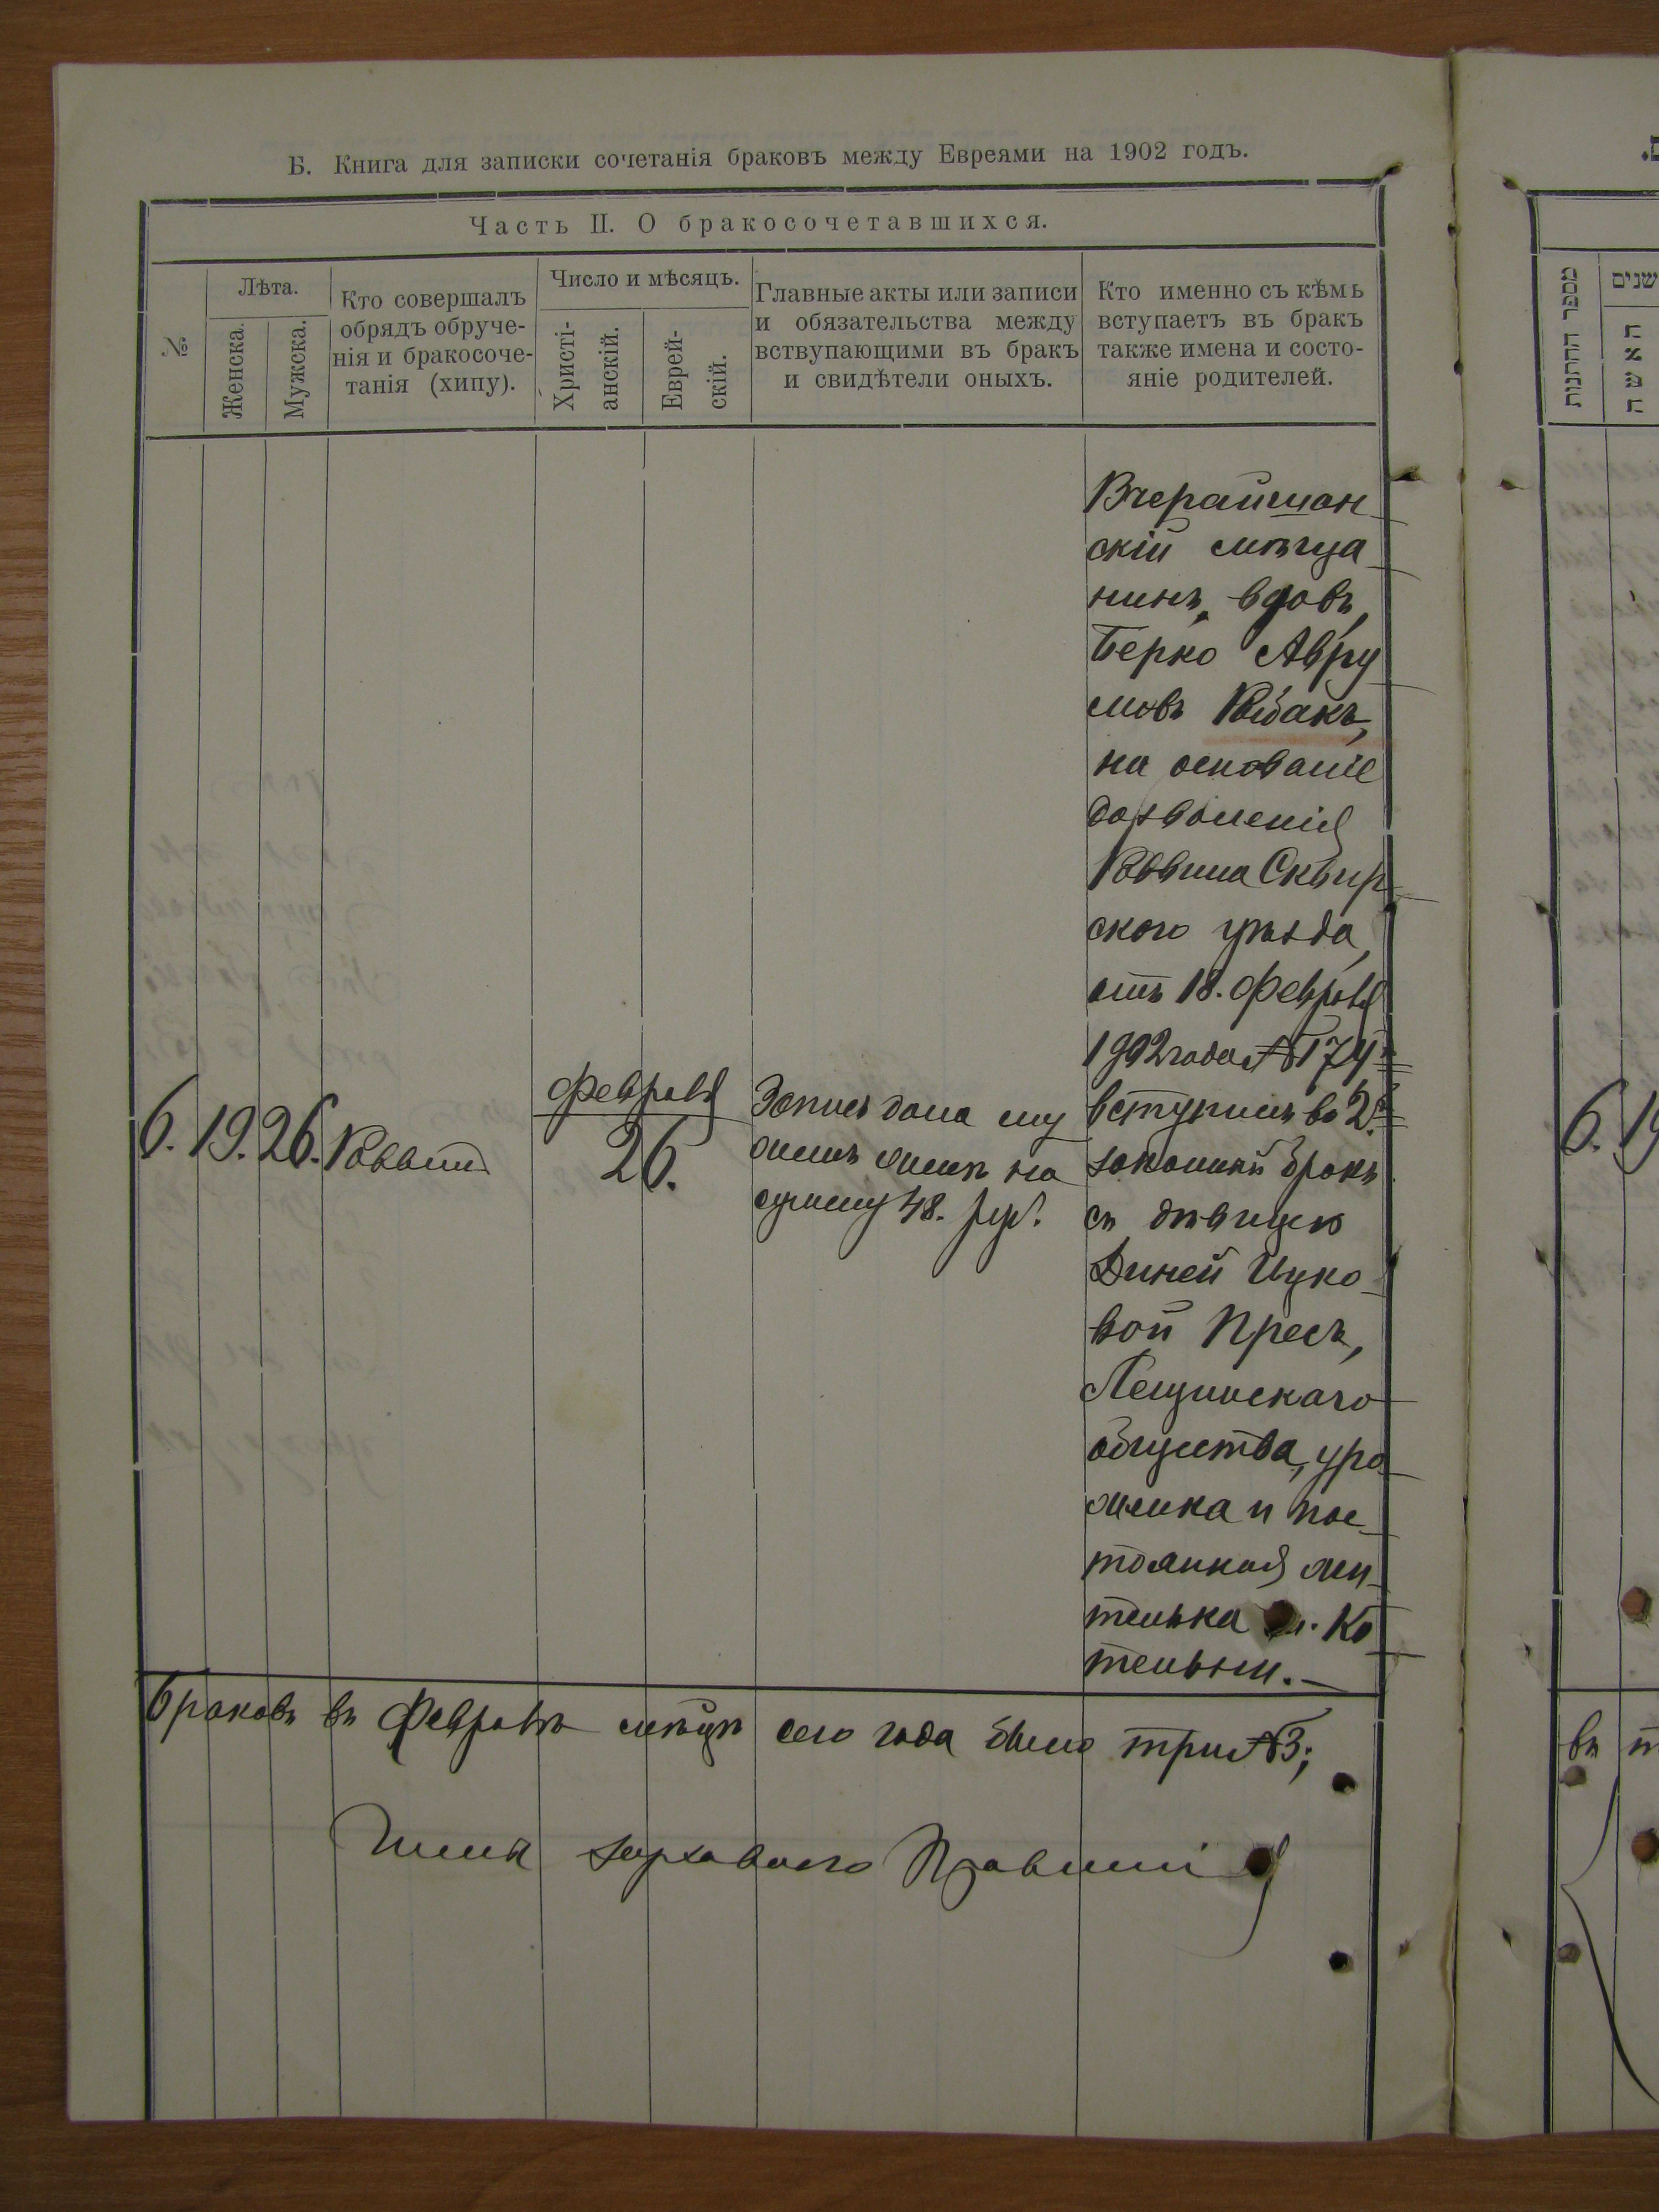 Б. Книга для записки сочетанія браковъ между Евреями на 1902 годъ.
Часть II. О бракосочетавшихся.
№
Лѣта.
Женска.
Мужска.
Кто совершалъ
обрядъ обруче-
нія и бракосоче-
танія (хипу).
Число и мѣсяцъ.
Христі-
анскій.
Еврей-
скій.
Главные акты или записи
и обязательства между
вствупающими въ бракъ
и свидѣтели оныхъ.
Кто именно съ кѣмъ
вступаетъ въ бракъ
также имена и состо-
яніе родителей.
6. 19. 26. Раввин
Февраля
26.
Запись дана му
жемъ женѣ на
сумму 48. руб.
Вчерайшан
скій мѣща
нинъ, вдовъ,
Берко Авру
мовъ Рыбакъ,
на основаніе
дозволенія
Раввина Сквир
ского уѣзда,
отъ 18. Февраля
1902 года № 174
вступилъ во 2.
законный бракъ
съ дѣвицею
Диней Ицко-
вой Пресъ,
Лещинскаго
общества, уро
женка и пос-
тоянная жи-
телька м. Ко
тельни.—
Браковъ въ Февралѣ мѣсяцѣ сего года было три №3;
Члена духовного Правленія
מספר החתונות
שנים
האשה
6. 19
въ